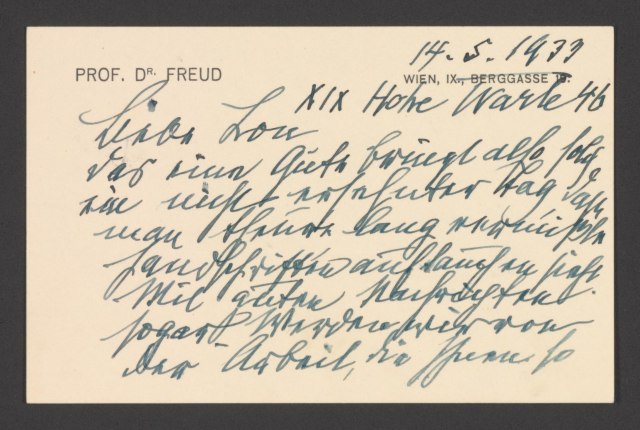 14. 5. 1933
PROF. DR. FREUD
WIEN, IX., BERGGASSE 19.
XIX Hohe Warte 46
Liebe Lou
Das eine Gute bringt also solch
ein nicht ersehnter Tag daß
man theure lang vermißte
Handschriften auftauchen sieht
Mit guten Nachrichten
sogar! Werden wir von
der Arbeit, die Ihnen so